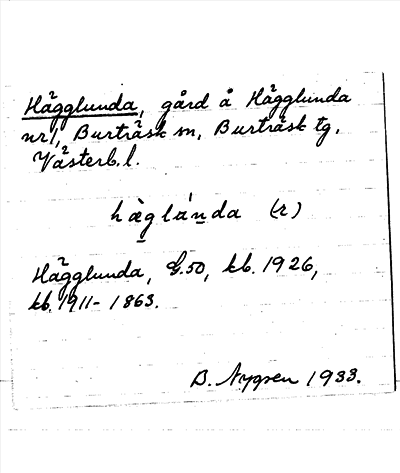 Hägglunda, gård å Hägglunda
nr 1, Burträsk sn, Burträsk tg,
Västerb. l.
hæ̀glánda (r)
Hägglunda, G.50, kb. 1926,
kb. 1911-1863.
B. Nygren 1933.